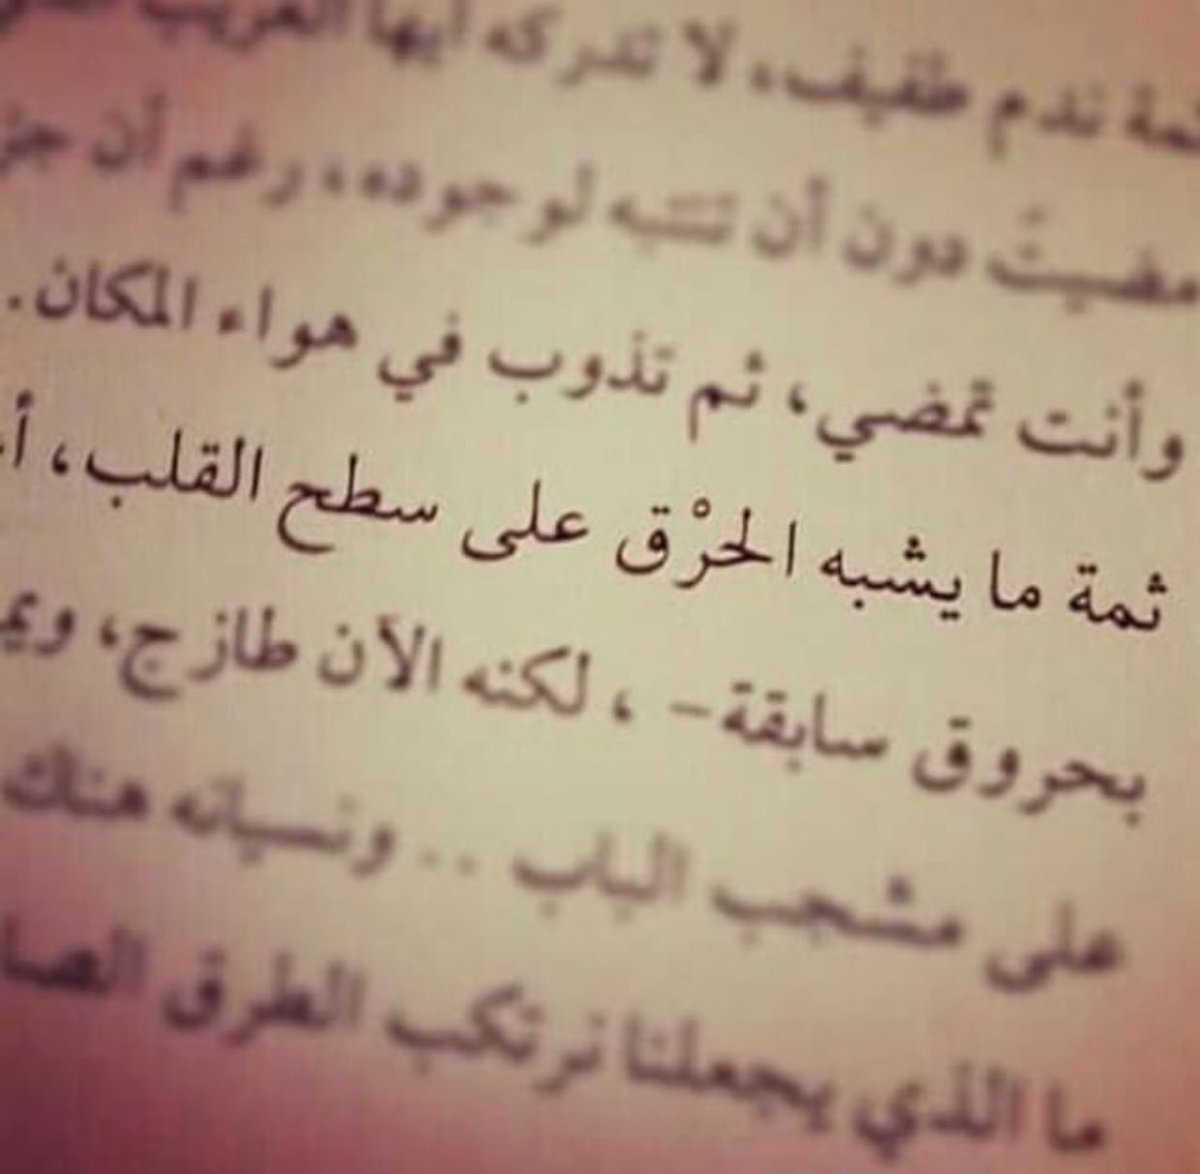 ثمة ندم طفيف، لا تدركه أيها الغريب
مضيتَ دون أن تنتبه لوجوده، رغم أن
وأنت تمضي، ثم تذوب في هواء المكان.
ثمة ما يشبه الحرْق على سطح القلب،
بحروق سابقة- ، لكنه الآن طازج،
على مشجب الباب .. ونسيانه هناك
ما الذي يجعلنا نرتكب الطرق